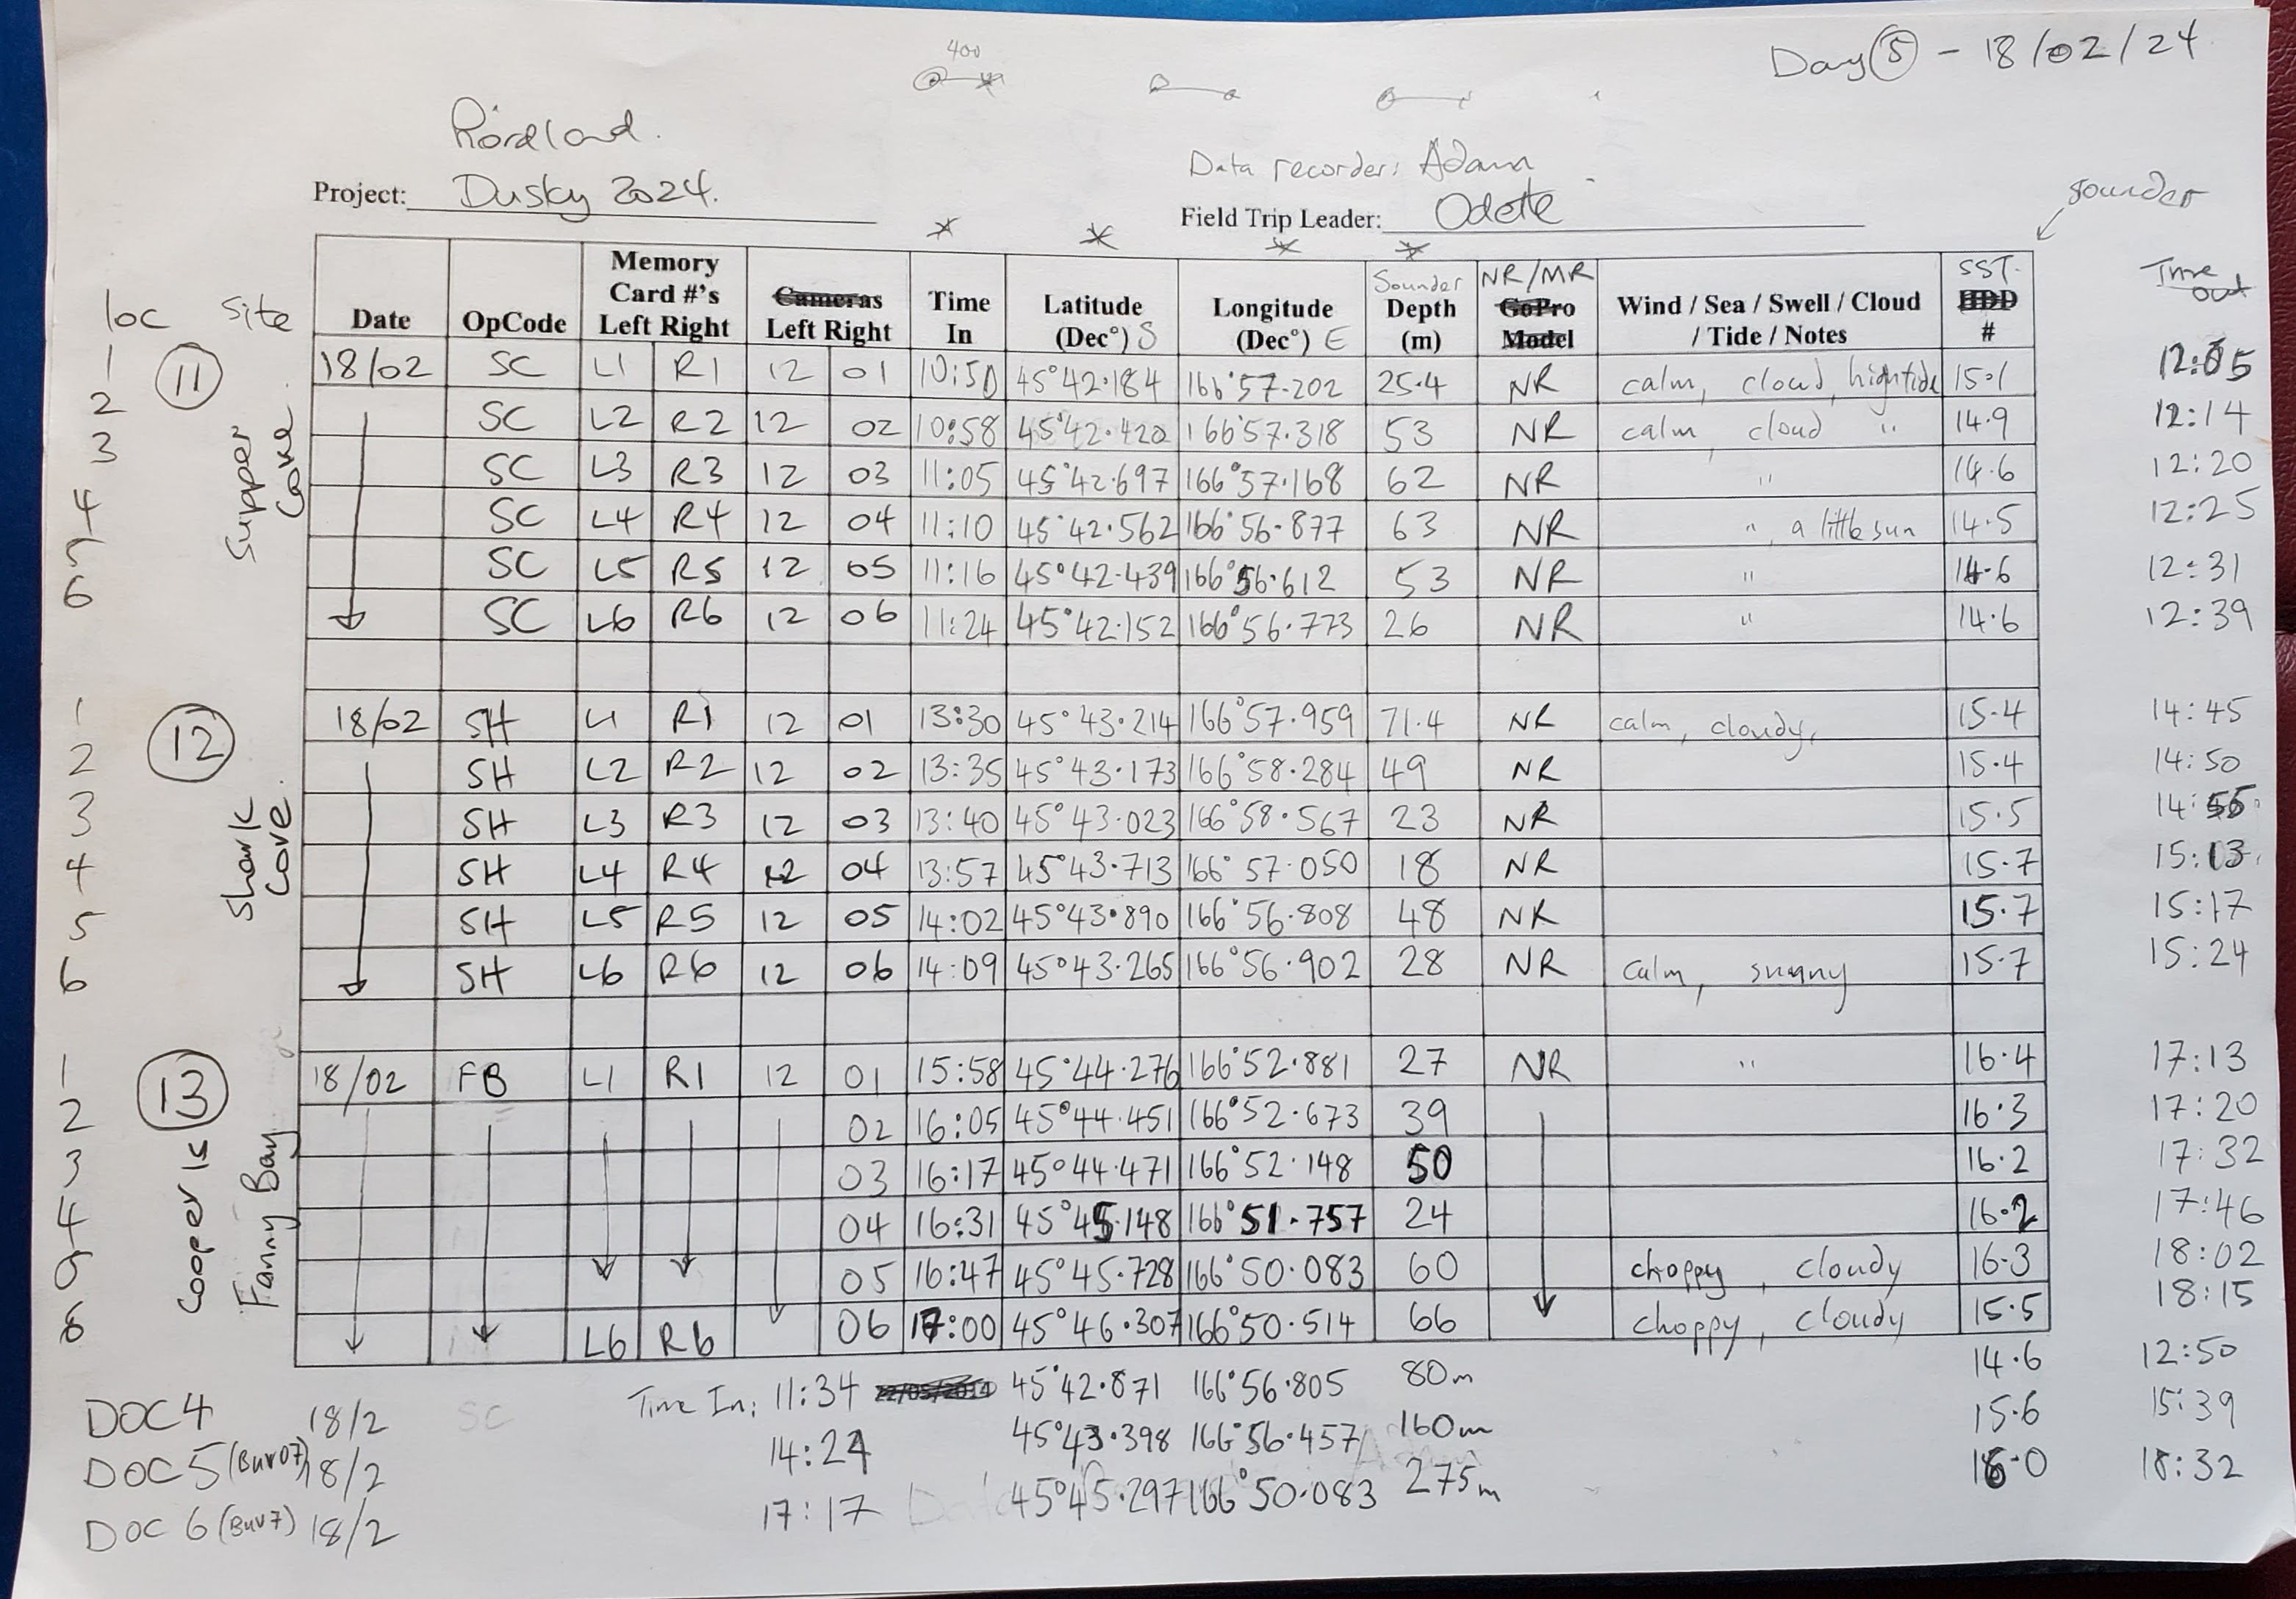 400
Day 5 - 18/02/24
Fiordland.
Data recorder: Adam
Project: Dusky 2024.
Field Trip Leader: Odette
sounder
loc site Date OpCode Memory Card #'s Left Right Cameras Left Right Time In Latitude (Dec°) S Longitude (Dec°) E Sounder Depth (m) NR/MR GoPro Model Wind / Sea / Swell / Cloud / Tide / Notes SST. HDD # Time out
11 Supper Cove
1 18/02 SC L1 R1 12 01 10:50 45°42.184 166°57.202 25.4 NR calm, cloud, hightide 15.1 12:05
2 SC L2 R2 12 02 10:58 45°42.420 166°57.318 53 NR calm, cloud " 14.9 12:14
3 SC L3 R3 12 03 11:05 45°42.697 166°57.168 62 NR " 14.6 12:20
4 SC L4 R4 12 04 11:10 45°42.562 166°56.877 63 NR ", a little sun 14.5 12:25
5 SC L5 R5 12 05 11:16 45°42.439 166°56.612 53 NR " 14.6 12:31
6 SC L6 R6 12 06 11:24 45°42.152 166°56.773 26 NR " 14.6 12:39
12 Shark Cove
1 18/02 SH L1 R1 12 01 13:30 45°43.214 166°57.959 71.4 NR calm, cloudy, 15.4 14:45
2 SH L2 R2 12 02 13:35 45°43.173 166°58.284 49 NR 15.4 14:50
3 SH L3 R3 12 03 13:40 45°43.023 166°58.567 23 NR 15.5 14:55
4 SH L4 R4 12 04 13:57 45°43.713 166°57.050 18 NR 15.7 15:13
5 SH L5 R5 12 05 14:02 45°43.890 166°56.808 48 NR 15.7 15:17
6 SH L6 R6 12 06 14:09 45°43.265 166°56.902 28 NR calm, sunny 15.7 15:24
13 Cooper Is Fanny Bay
1 18/02 FB L1 R1 12 01 15:58 45°44.276 166°52.881 27 NR " 16.4 17:13
2 02 16:05 45°44.451 166°52.673 39 16.3 17:20
3 03 16:17 45°44.471 166°52.148 50 16.2 17:32
4 04 16:31 45°45.148 166°51.757 24 16.2 17:46
5 05 16:47 45°45.728 166°50.083 60 choppy, cloudy 16.3 18:02
6 L6 R6 06 17:00 45°46.307 166°50.514 66 choppy, cloudy 15.5 18:15
DOC 4 18/2 SC Time In: 11:34 45°42.871 166°56.805 80m 14.6 12:50
DOC 5 (Buv07) 18/2 14:24 45°43.398 166°56.457 160m 15.6 15:39
DOC 6 (Buv7) 18/2 17:17 45°45.297 166°50.083 275m 16.0 18:32